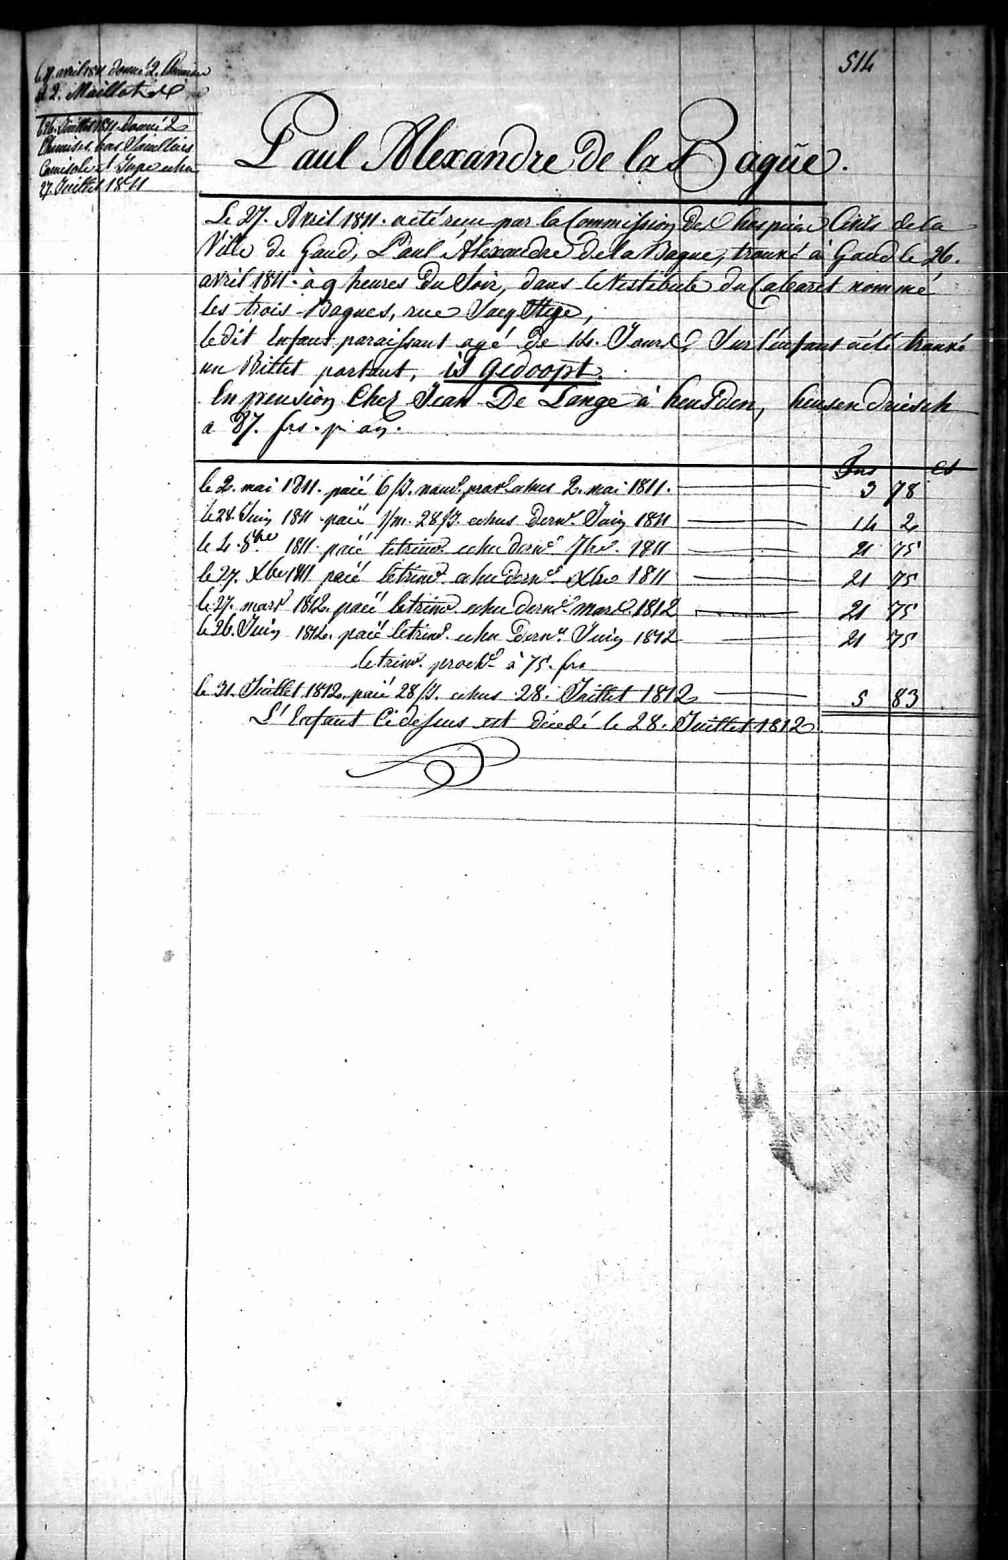 514
avril 1811 donné 2.
et 2. Maillot
Juillet 1811 donné 2
Chemises, bas
Camisole & Jupe echu
27. Juillet 1811
Paul Alexandre de la Bagüe.
Le 27. Avril 1811. a été recu par la Commission des hospices Civils de la
Ville de Gand, Paul Alexandre de la Bague, trouvé à Gand le 26.
avril 1811. à 9 heures Du Soir, dans le Vestibule du Cabaret nommé
les trois Bagues, rue
le dit Enfant, paraissant agé de 14. Jours, Sur l'enfant a été trouvé
un Billet portant, is gedoopt.
En pension Chez Jean De Lange à heusden, heusendriesch
a 87. frs. p. an.
Frs cs
le 2. mai 1811. paié 6/J. nour. prov. echus 2. mai 1811. 3 78
le 28. Juin 1811 paié 1/m. 28/J. echus dern.r Juin 1811 14 2
le 4. 8bre 1811. paié le trim.e echu dern.r 7bre. 1811 21 75
le 27. Xbre 1811 paié le trim.e echu dern.r Xbre 1811 21 75
le 27. mars 1812. paié le trim.e echu dern.r mars 1812 21 75
le 26. Juin 1812. paié le trim.e echu dern.r Juin 1812 21 75
le trim.e proch.n à 75. frs
le 31. Juillet 1812. paié 28/J. echus 28. Juillet 1812 5 83
L'Enfant Ci dessus est décédé le 28. Juillet 1812.